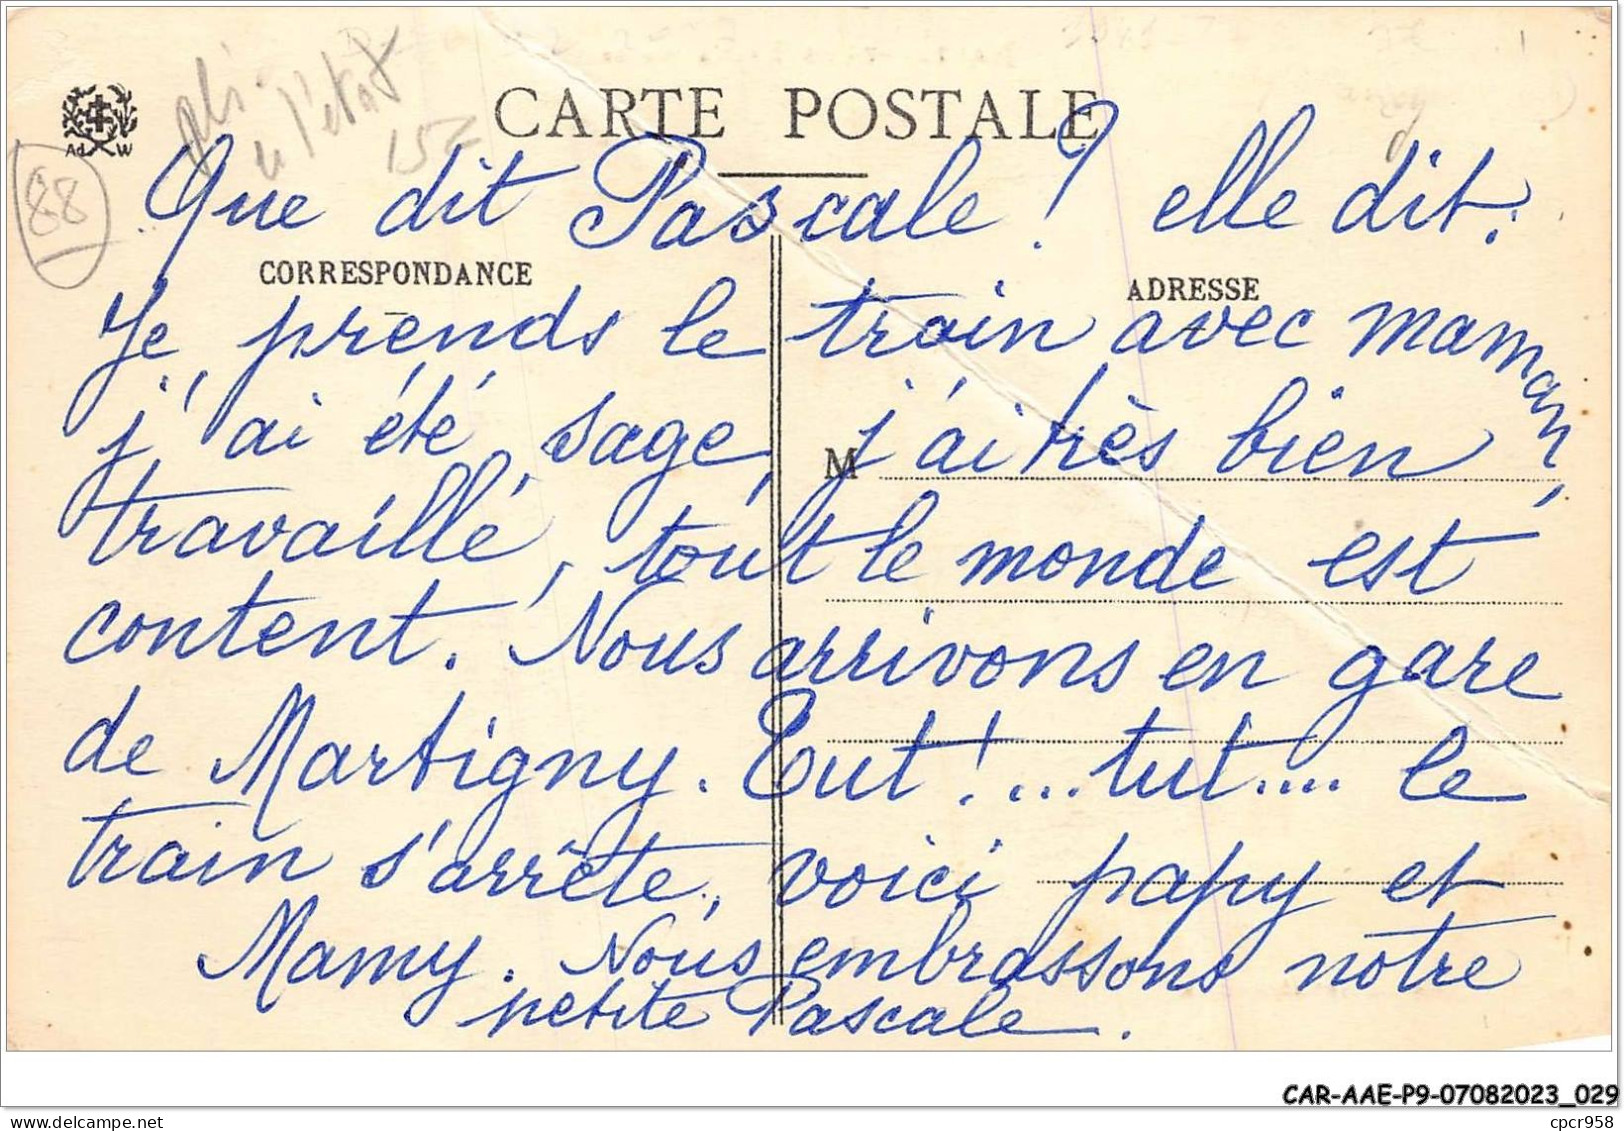 pli
à l'état
15F
CARTE POSTALE
Ad W
88
Que dit Pascale ? elle dit :
CORRESPONDANCE
ADRESSE
Je prends le train avec maman,
j'ai été sage, j'ai très bien
M
travaillé, tout le monde est
content. Nous arrivons en gare
de Martigny. Tut !...tut.... le
train s'arrête, voici papy et
Mamy. Nous embrassons notre
petite Pascale.
CAR-AAE-P9-07082023_029
cpcr958